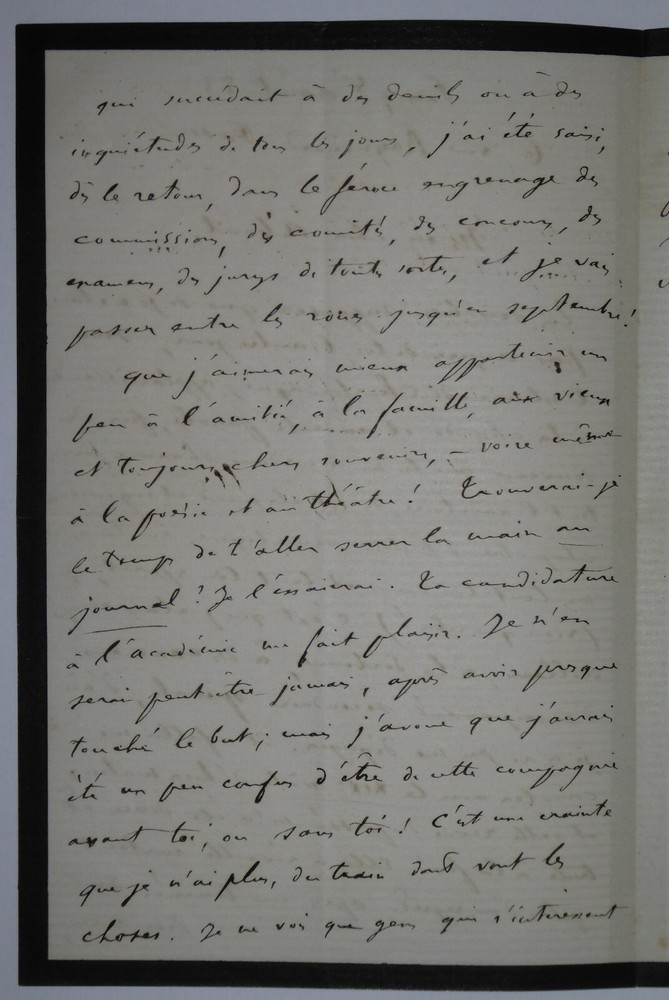 qui succédait à des deuils ou à des
inquiétudes de tous les jours, j'ai été saisi,
dès le retour, dans le féroce engrenage des
commissions, des comités, des concours, des
examens, des jurys de toutes sortes, et je vais
passer entre les roues jusqu'en septembre !
que j'aimerais mieux appartenir un
peu à l'amitié, à la famille, aux vieux
et toujours chers souvenirs, – voire même
à la poésie et au théâtre ! Trouverai-je
le temps de t'aller serrer la main au
journal ? Je l'essaierai. Ta candidature
à l'académie me fait plaisir. Je n'en
serai peut-être jamais, après avoir presque
touché le but ; mais j'avoue que j'aurais
été un peu confus d'être de cette compagnie
avant toi, ou sans toi ! C'est une crainte
que je n'ai plus, du train dont vont les
choses. Je ne vois que gens qui s'intéressent